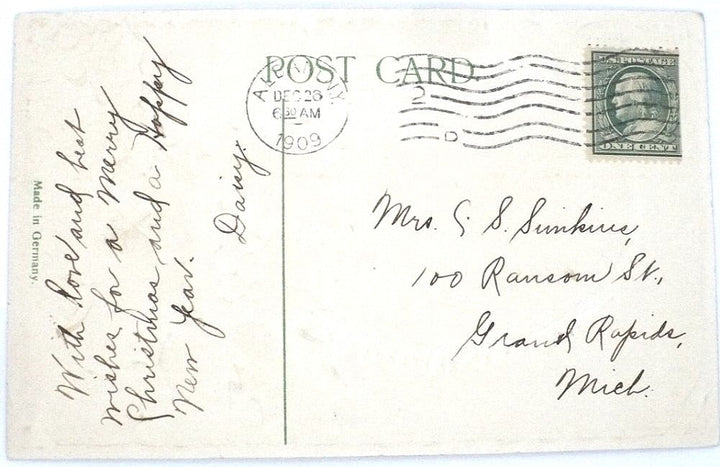 POST CARD
DEC 26
6 30 AM
1909
2
D
U.S. POSTAGE
ONE CENT
With love and best
wishes for a Merry
Christmas and a Happy
New Year.
Daisy.
Made in Germany.
Mrs. S.
100 Ransom St.,
Grand Rapids,
Mich.